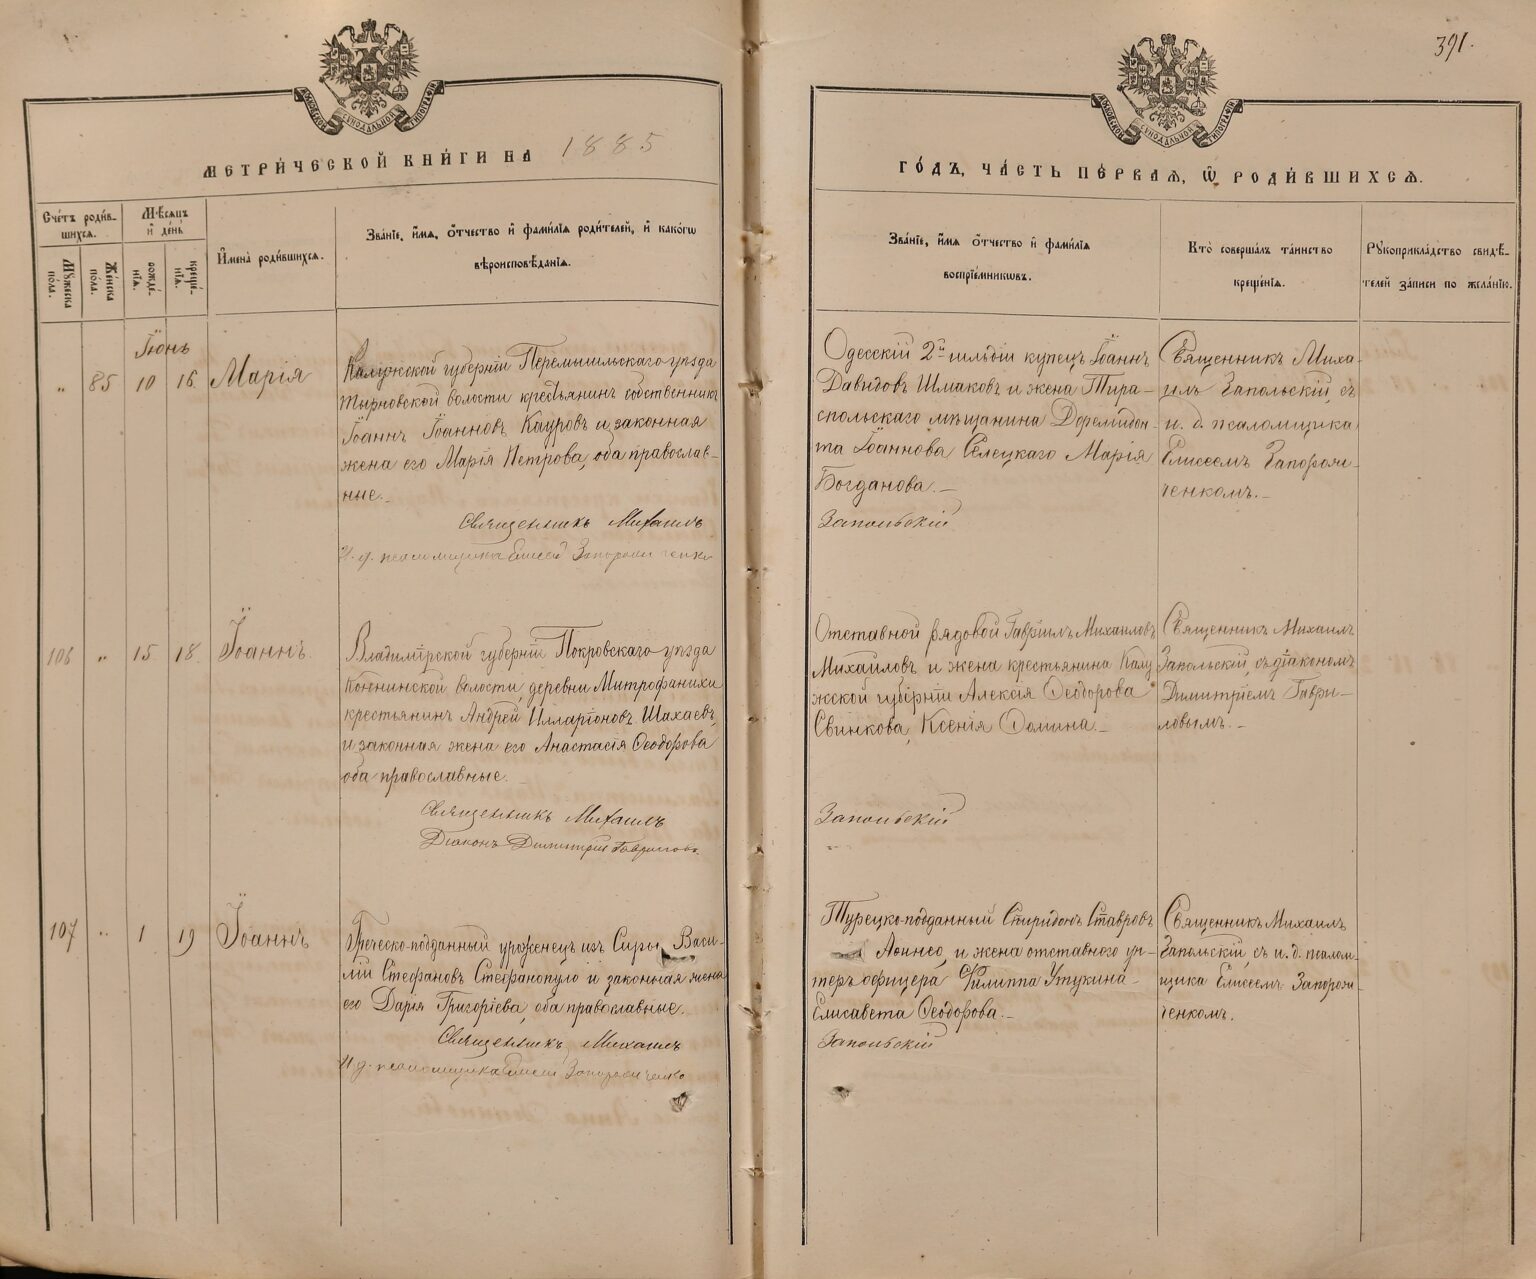 391.
МОСКОВСКОЙ СѴНОДАЛЬНОЙ ТИПОГРАФІИ
МОСКОВСКОЙ СѴНОДАЛЬНОЙ ТИПОГРАФІИ
МЕТРИ́ЧЕСКОЙ КНИ́ГИ НА 1885
ГО́ДЪ, ЧА́СТЬ ПЕ́РВАѦ, Ѡ҆ РОДИ́ВШИХСѦ.
Сче́тъ роди́в-
шихсѧ.
Мꙋ́жеска по́ла.
Же́нска по́ла.
Мѣ́сѧцъ и҆ де́нь
рожде́-
нїѧ.
креще́-
нїѧ.
И҆мена̀ роди́вшихсѧ.
Зва́нїе, и҆́мѧ, ѻ҆́тчество и҆ фами́лїѧ роди́телей, и҆ како́гѡ
вѣроисповѣ́данїѧ.
Зва́нїе, и҆́мѧ ѻ҆́тчество и҆ фами́лїѧ
воспрїе́мникѡвъ.
Кто̀ соверша́лъ та́инство
креще́нїѧ.
Рꙋкоприкла́дство свидѣ́-
телей за́писи по жела́нїю.
Іюнь
„ 85 10 16 Марія
Калужской губерніи Перемышльскаго уѣзда
Тырновской волости крестьянинъ собственникъ
Іоаннъ Іоанновъ Кауровъ и законная
жена его Марія Петрова, оба православ-
ные.
Священникъ Михаилъ
И. д. псаломщика Елисей Запорожченко
Одесскій 2й гильдіи купецъ Іоаннъ
Давидовъ Шмаковъ и жена Тира-
спольскаго мѣщанина Доремидон-
та Іоаннова Селецкаго Марія
Богданова.
Запольскій
Священникъ Миха-
илъ Запольскій, съ
и. д. псаломщика
Елисеемъ Запорож-
ченкомъ.
106 „ 15 18 Іоаннъ
Владимірской губерніи Покровскаго уѣзда
волости, деревни Митрофанихи
крестьянинъ Андрей Илларіоновъ Шахаевъ,
и законная жена его Анастасія Ѳеодорова
оба православные.
Священникъ Михаилъ
Діаконъ Димитрій Гавриловъ
Отставной рядовой Гавріилъ Михаиловъ
Михайловъ и жена крестьянина Калу
жской губерніи Алексія Ѳеодорова
Свинкова, Ксенія Ѳомина.
Запольскій
Священникъ Михаилъ
Запольскій, съ діакономъ
Димитріемъ Гаври-
ловымъ.
107 „ 1 19 Іоаннъ
Греческо-подданный уроженецъ изъ Сиры, Васи-
лій Стефановъ Стефанопуло и законная жена
его Дарія Григоріева, оба православные.
Священникъ Михаилъ
И. д. псаломщика Елисей Запорожченко
Турецко-подданный Спиридонъ Ставровъ
и жена отставного ун-
теръ офицера Филиппа Утукина
Елисавета Ѳеодорова.
Запольскій
Священникъ Михаилъ
Запольскій, съ и. д. псалом-
щика Елисеемъ Запорож-
ченкомъ.